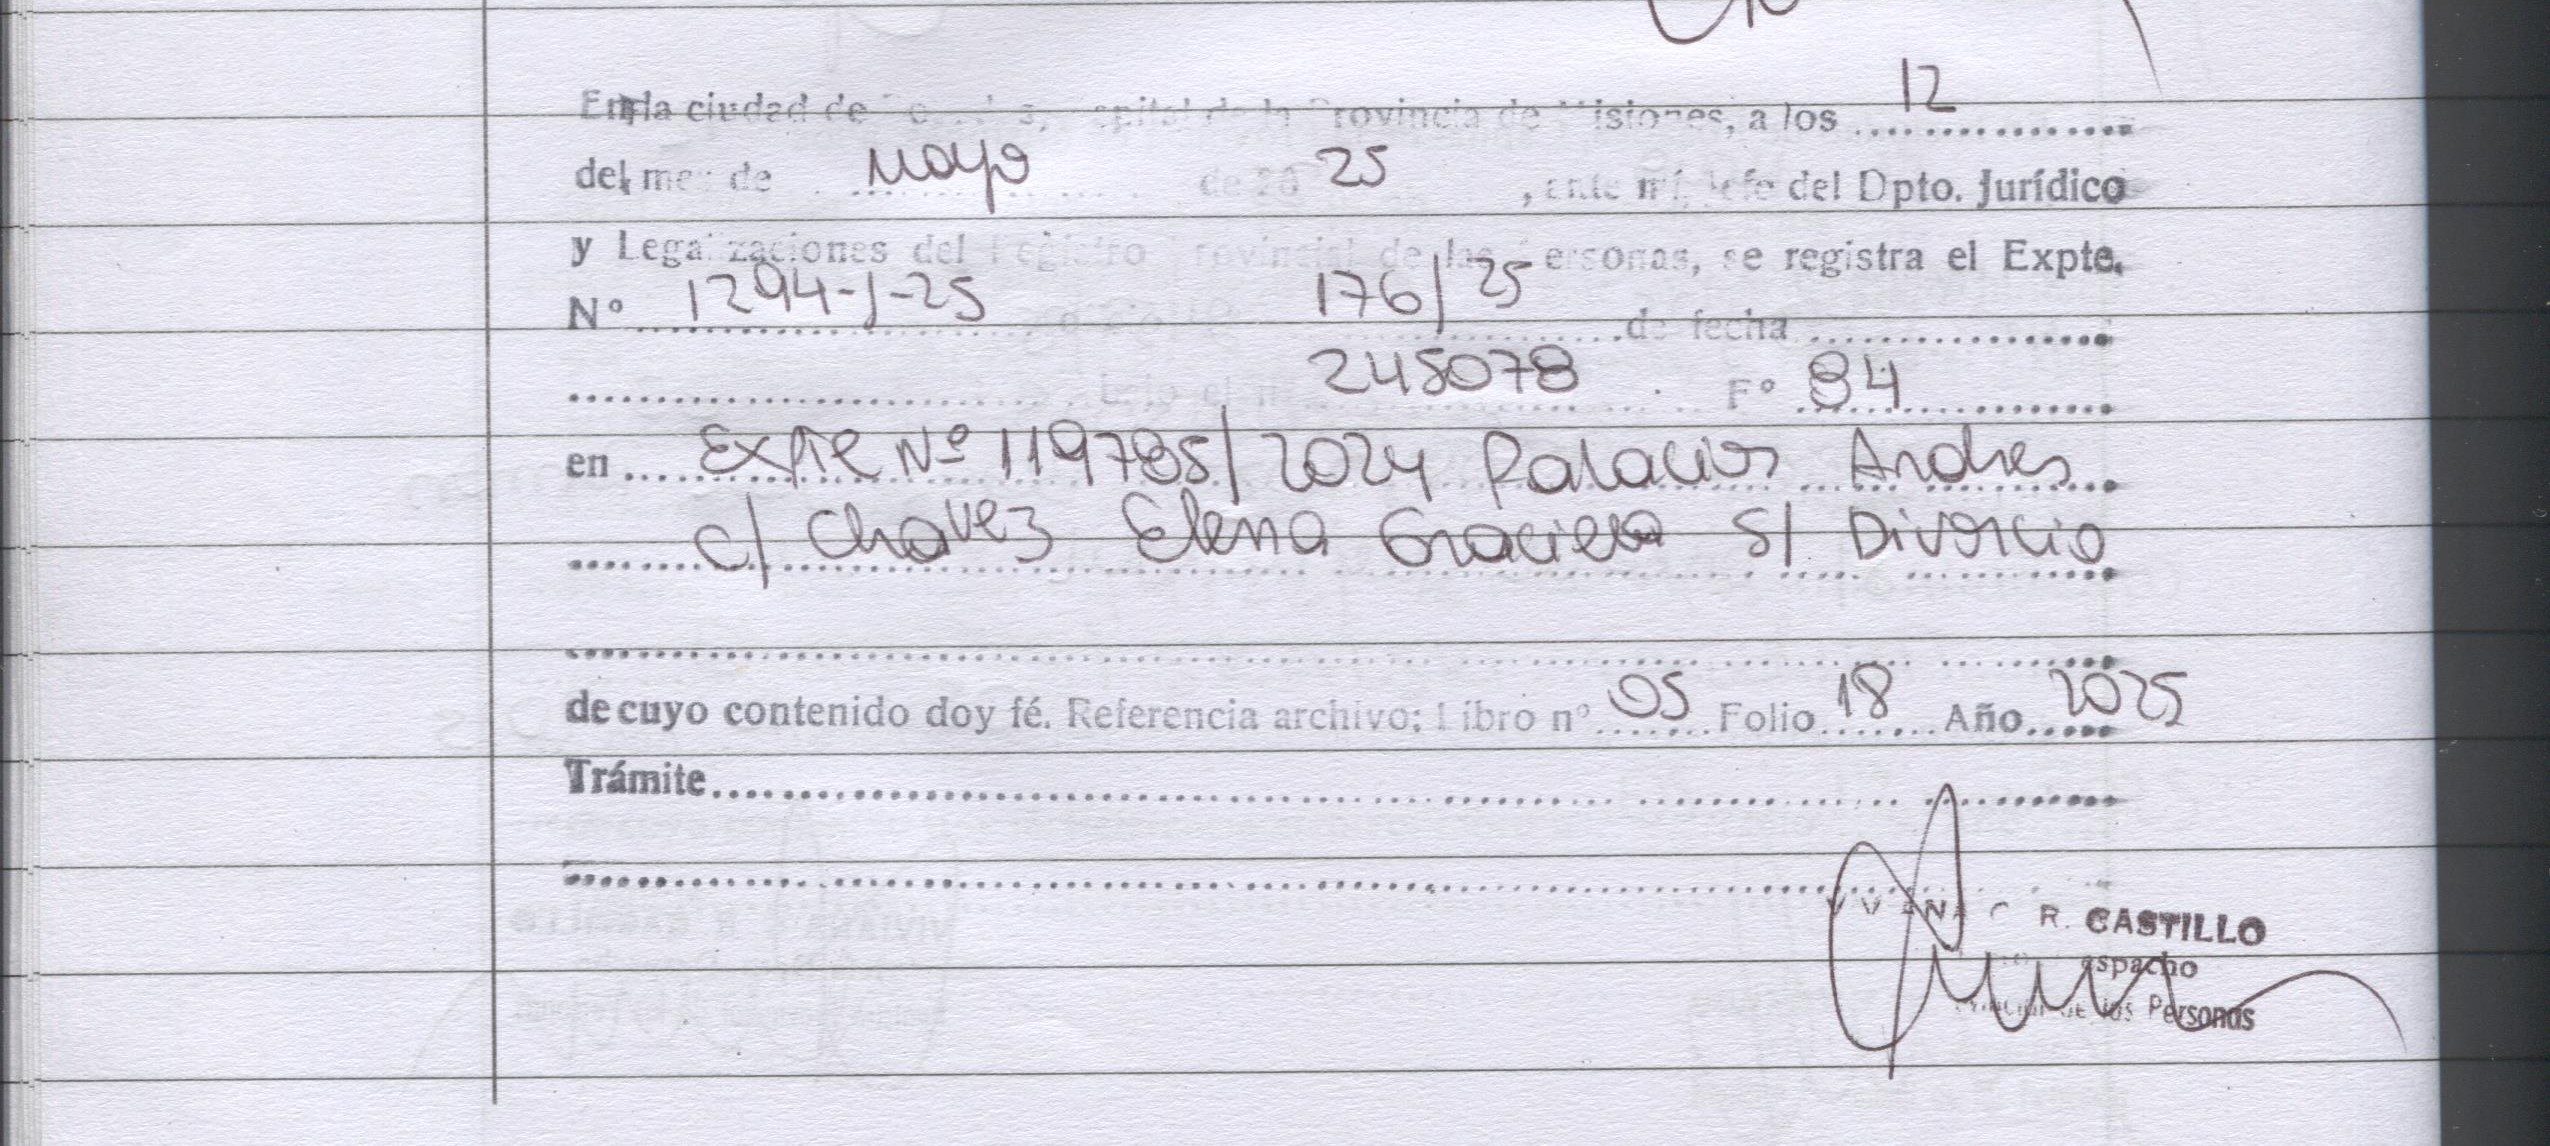 En la ciudad de Posadas, capital de la Provincia de Misiones, a los 12
del mes de Mayo de 20 25, ante mí, Jefe del Dpto. Jurídico
y Legalizaciones del Registro Provincial de las Personas, se registra el Expte.
Nº 1294-J-25 176/25 de fecha
bajo el nº 245078 Fº 94
en Expte Nº 119785/2024 Palacios Andres
c/ Chavez Elena Graciela S/ Divorcio
de cuyo contenido doy fé. Referencia archivo: Libro nº 05 Folio 18 Año 2025
Trámite
R. CASTILLO
Despacho
de las Personas